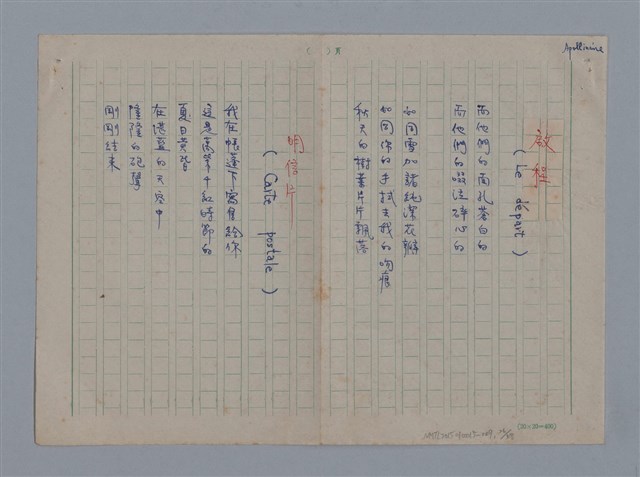 Apollinaire
啟程
( Le départ )
而他們的面孔蒼白的
而他們的啜泣碎心的
如同雪加諸純潔花瓣
如同你的手拭去我的吻痕
秋天的樹葉片片飄落
明信片
( Carte postale )
我在帳蓬下寫給你
這是萬紫千紅時節的
夏日黃昏
在湛藍的天空中
隆隆的砲聲
剛剛結束